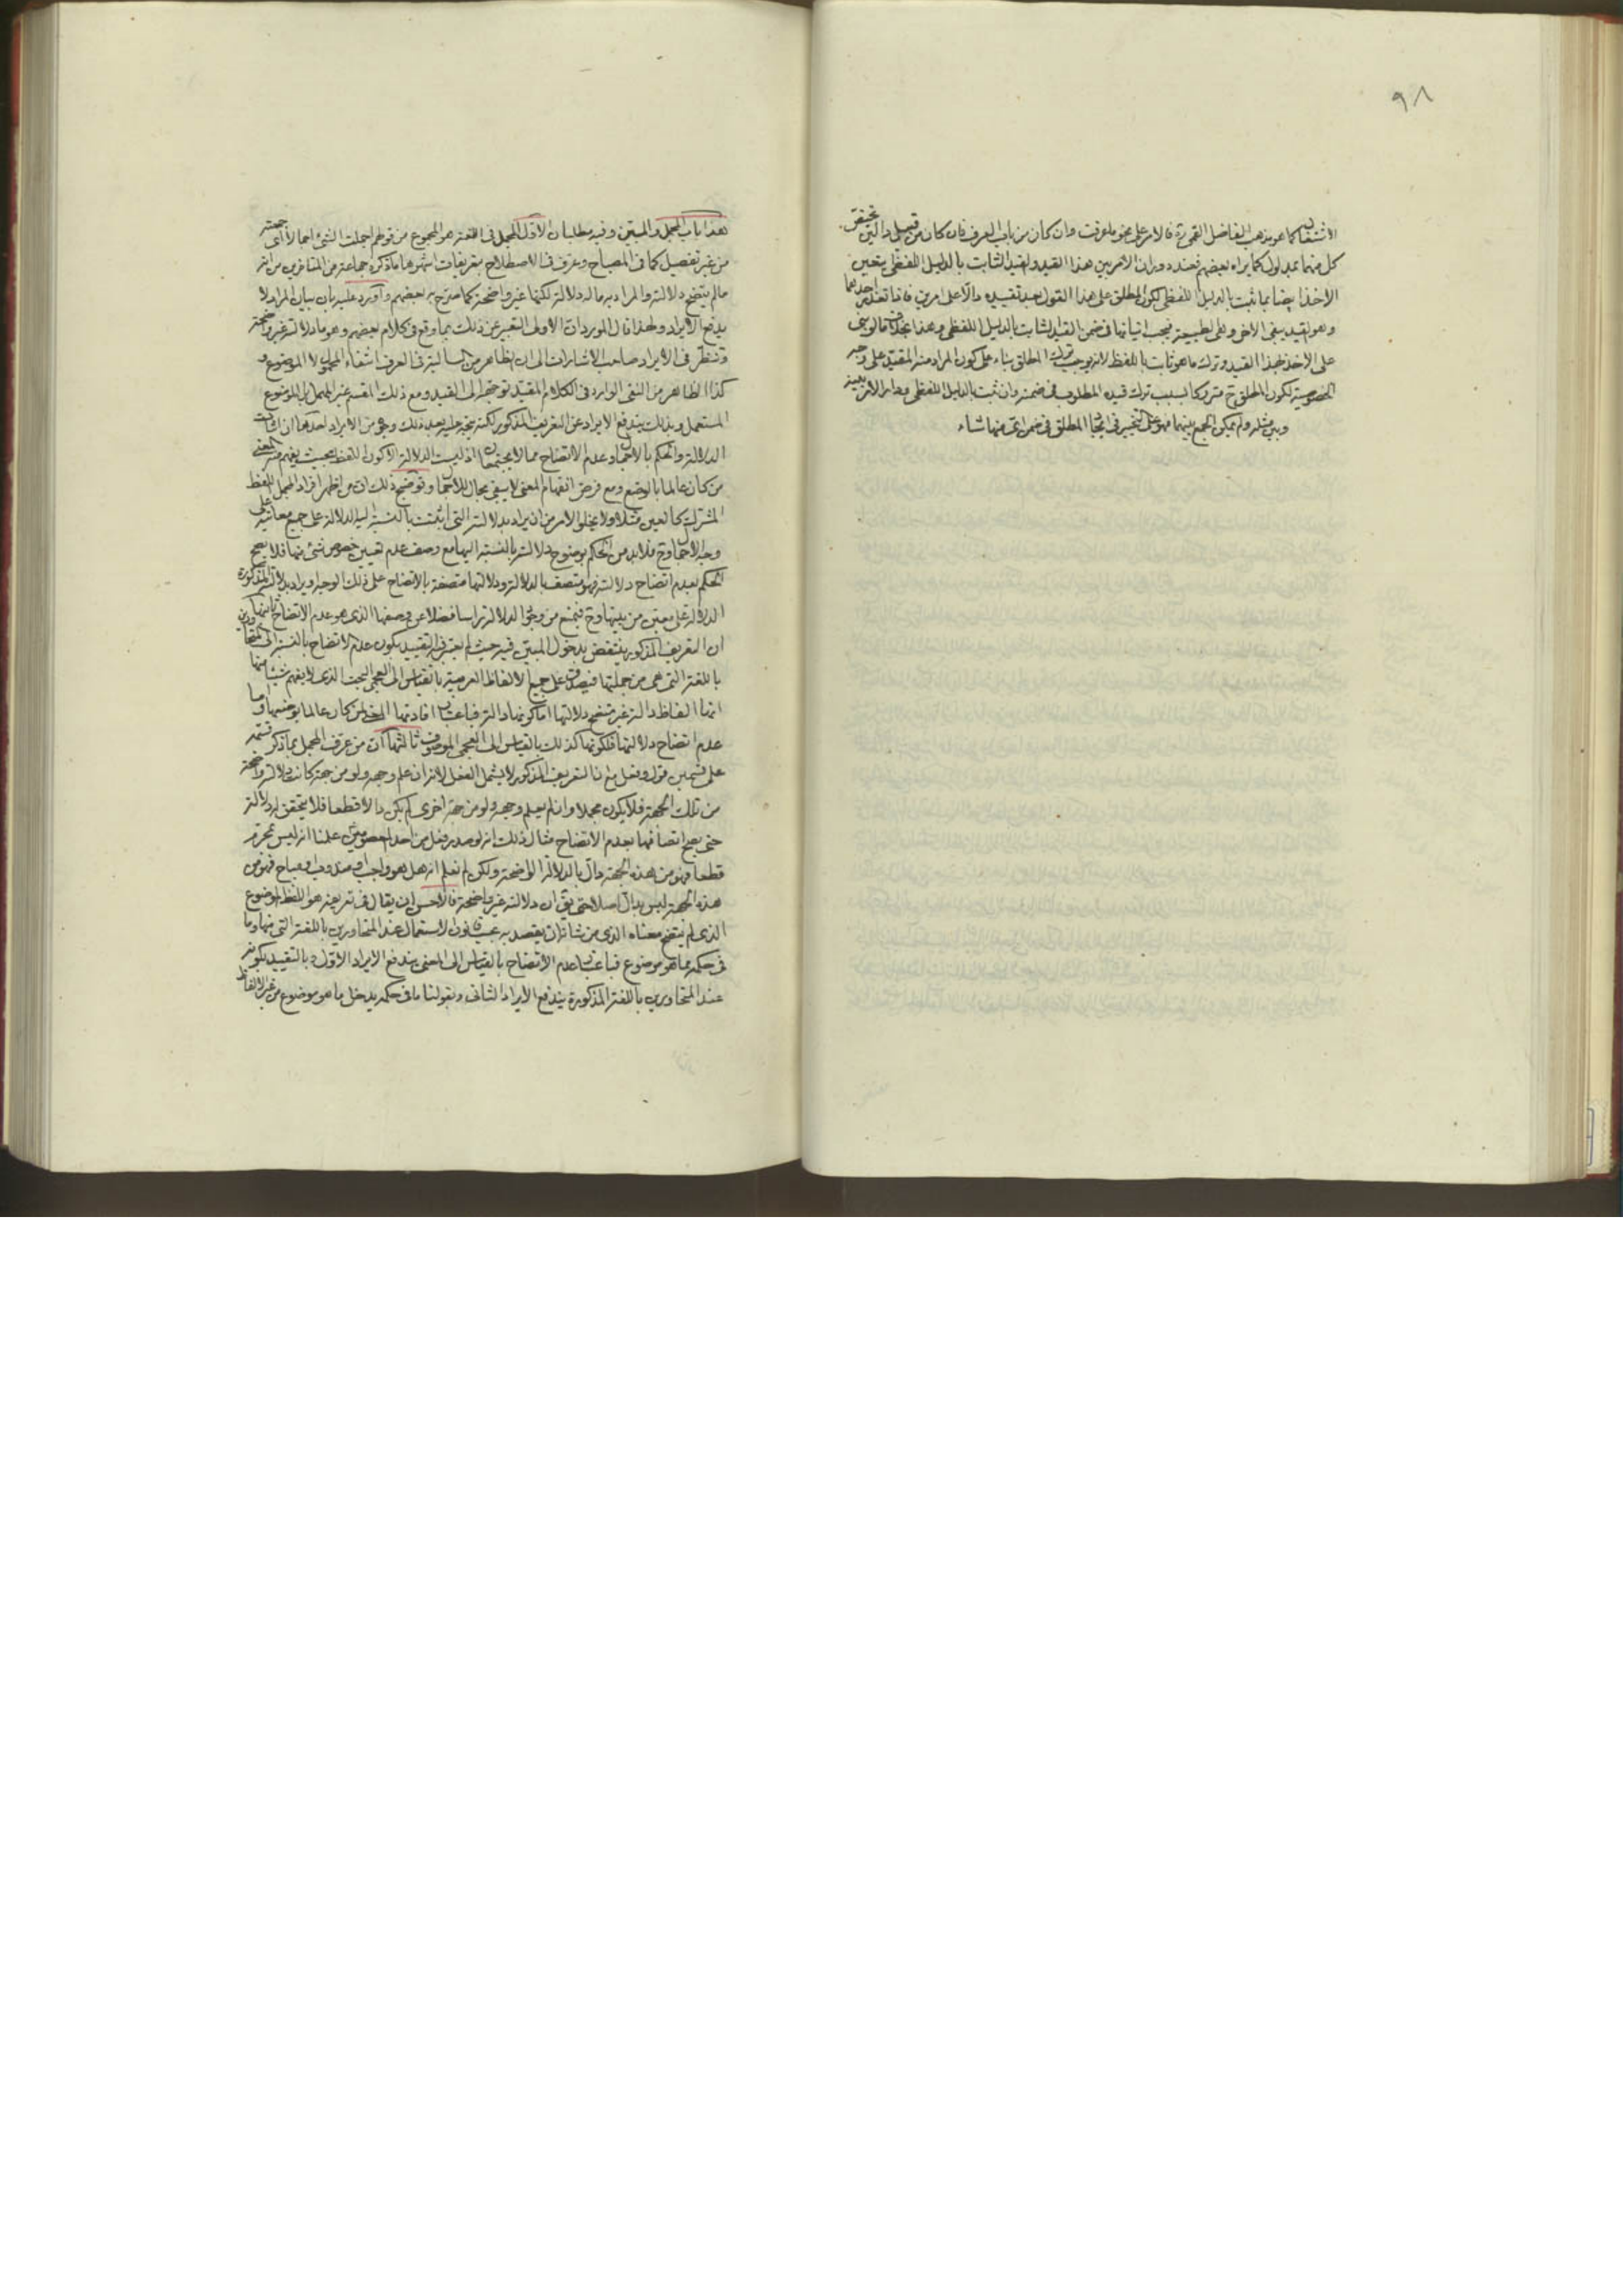 ٩٨
الاشتغال كما هو مذهب الفاضل القمي ره فالامر على نحو ما عرفت وان كان من باب العرف فان كان من قبيل دالين تحقق
كل منهما بمدلول كما يراه بعضهم فعند دوران الامر بين هذا القيد والقيد الثابت بالدليل اللفظي يتعين
الاخذ ايضا بما ثبت بالدليل اللفظي لكون المطلق على هذا القول بعد تقييده دالا على امرين فاذا تعذر احدهما
وهو القيد يبقى الاخر وهي الطبيعة فيجب اتيانها في ضمن القيد الثابت بالدليل اللفظي وهذا بخلاف ما لو بنى
على الاخذ بهذا القيد وترك ما هو ثابت باللفظ لانه يوجب ترك المطلق بناء على كون المراد منه المقيد على وجه
الخصوصية لكون المطلق ح متروكا بسبب ترك قيده المطلوب في ضمنه وان ثبت بالدليل اللفظي ودار الامر بينه
وبين مثله ولم يمكن الجمع بينهما فهو على التخيير في ايجاد المطلق في ضمن اي منها شاء
هذا باب المجمل والمبين وفيه مطلبان الاول المجمل في اللغة هو المجموع من قولهم اجملت الشئ اجمالا اى جمعته
من غير تفصيل كما في المصباح وعرف في الاصطلاح بتعريفات اشهرها ما ذكره جماعة من المتاخرين من انه
ما لم يتضح دلالته والمراد به ما له دلالة لكنها غير واضحة كما صرح به بعضهم واورد عليه بان بيان المراد لا
يدفع الايراد ولهذا قال المورد ان الاولى التعبير عن ذلك بما وقع في كلام بعضهم وهو ما دلالته غير واضحة
وتنظر في الايراد صاحب الاشارات الى ان الظاهر من السالبة في العرف انتفاء المحمول لا الموضوع و
كذا الظاهر من النفي الوارد في الكلام المقيد توجهه الى القيد ومع ذلك المقسم غير المهمل بل الموضوع
المستعمل وبذلك يندفع الايراد عن التعريف المذكور لكنه يتجه عليه بعد ذلك وجوه من الايراد احدها ان اثبات
الدلالة والحكم بالاجمال وعدم الاتضاح مما لا يجتمعان اذ ليست الدلالة الا كون اللفظ بحيث يفهم منه المعنى
من كان عالما بالوضع ومع فرض انفهام المعنى لا يبقى مجال للاجمال وتوضيح ذلك ان من اظهر افراد المجمل اللفظ
المشترك كالعين مثلا ولا يخلو الامر من ان يراد بدلالته التي اثبتت بالنسبة اليه الدلالة على جميع معانيه على
وجه الاجمال وح فلا بد من الحكم بوضوح دلالته بالنسبة اليها مع وصف عدم تعيين خصوص شئ منها فلا يصح
الحكم بعدم اتضاح دلالته فهو متصف بالدلالة ودلالتها متصفة بالاتضاح على ذلك الوجه او يراد بدلالته المذكورة
الدلالة على معين من بينها وح فيمنع من وجود الدلالة راسا فضلا عن وصفها الذي هو عدم الاتضاح ثانيها
ان التعريف المذكور ينتقض بدخول المبين فيه حيث لم يعتبر فيه التقييد بكون عدم الاتضاح بالنسبة الى المتحاورين
باللغة التي هي من جملتها فيصدق على جميع الالفاظ العربية بالقياس الى العجمي البحت الذي لا يفهم شيئا منها
انها الفاظ دالة غير متضح دلالتها اما كونها دالة فباعتبار افادتها المعنى لمن كان عالما بوضعها واما
عدم اتضاح دلالتها فلكونها كذلك بالقياس الى العجمي الموصوف ثالثها ان من عرف المجمل بما ذكر قسمه
على قسمين قول وفعل مع ان التعريف المذكور لا يشمل الفعل لانه ان علم وجهه ولو من جهة كانت دلالته واضحة
من تلك الجهة فلا يكون مجملا وان لم يعلم وجهه ولو من جهة اخرى لم يكن دالا قطعا فلا يتحقق له دلالة
حتى يصح اتصافها بعدم الاتضاح مثال ذلك انه لو صدر فعل من احد المعصومين علمنا انه ليس بمحرم
قطعا فهو من هذه الجهة دال بالدلالة الواضحة ولكن لم نعلم انه هل هو واجب او مندوب او مباح فهو من
هذه الجهة ليس بدال اصلا حتى يق ان دلالته غير واضحة فالاحسن ان يقال في تعريفه هو اللفظ الموضوع
الذي لم يتضح معناه الذي من شانه ان يقصد به بحسب قانون الاستعمال عند المتحاورين باللغة التي منها وما
في حكمه مما هو موضوع فباعتبار عدم الاتضاح بالقياس الى المعنى يندفع الايراد الاول وبالتقييد بكونه
عند المتحاورين باللغة المذكورة يندفع الايراد الثاني وبقولنا ما في حكمه يدخل ما هو موضوع من غير الالفاظ